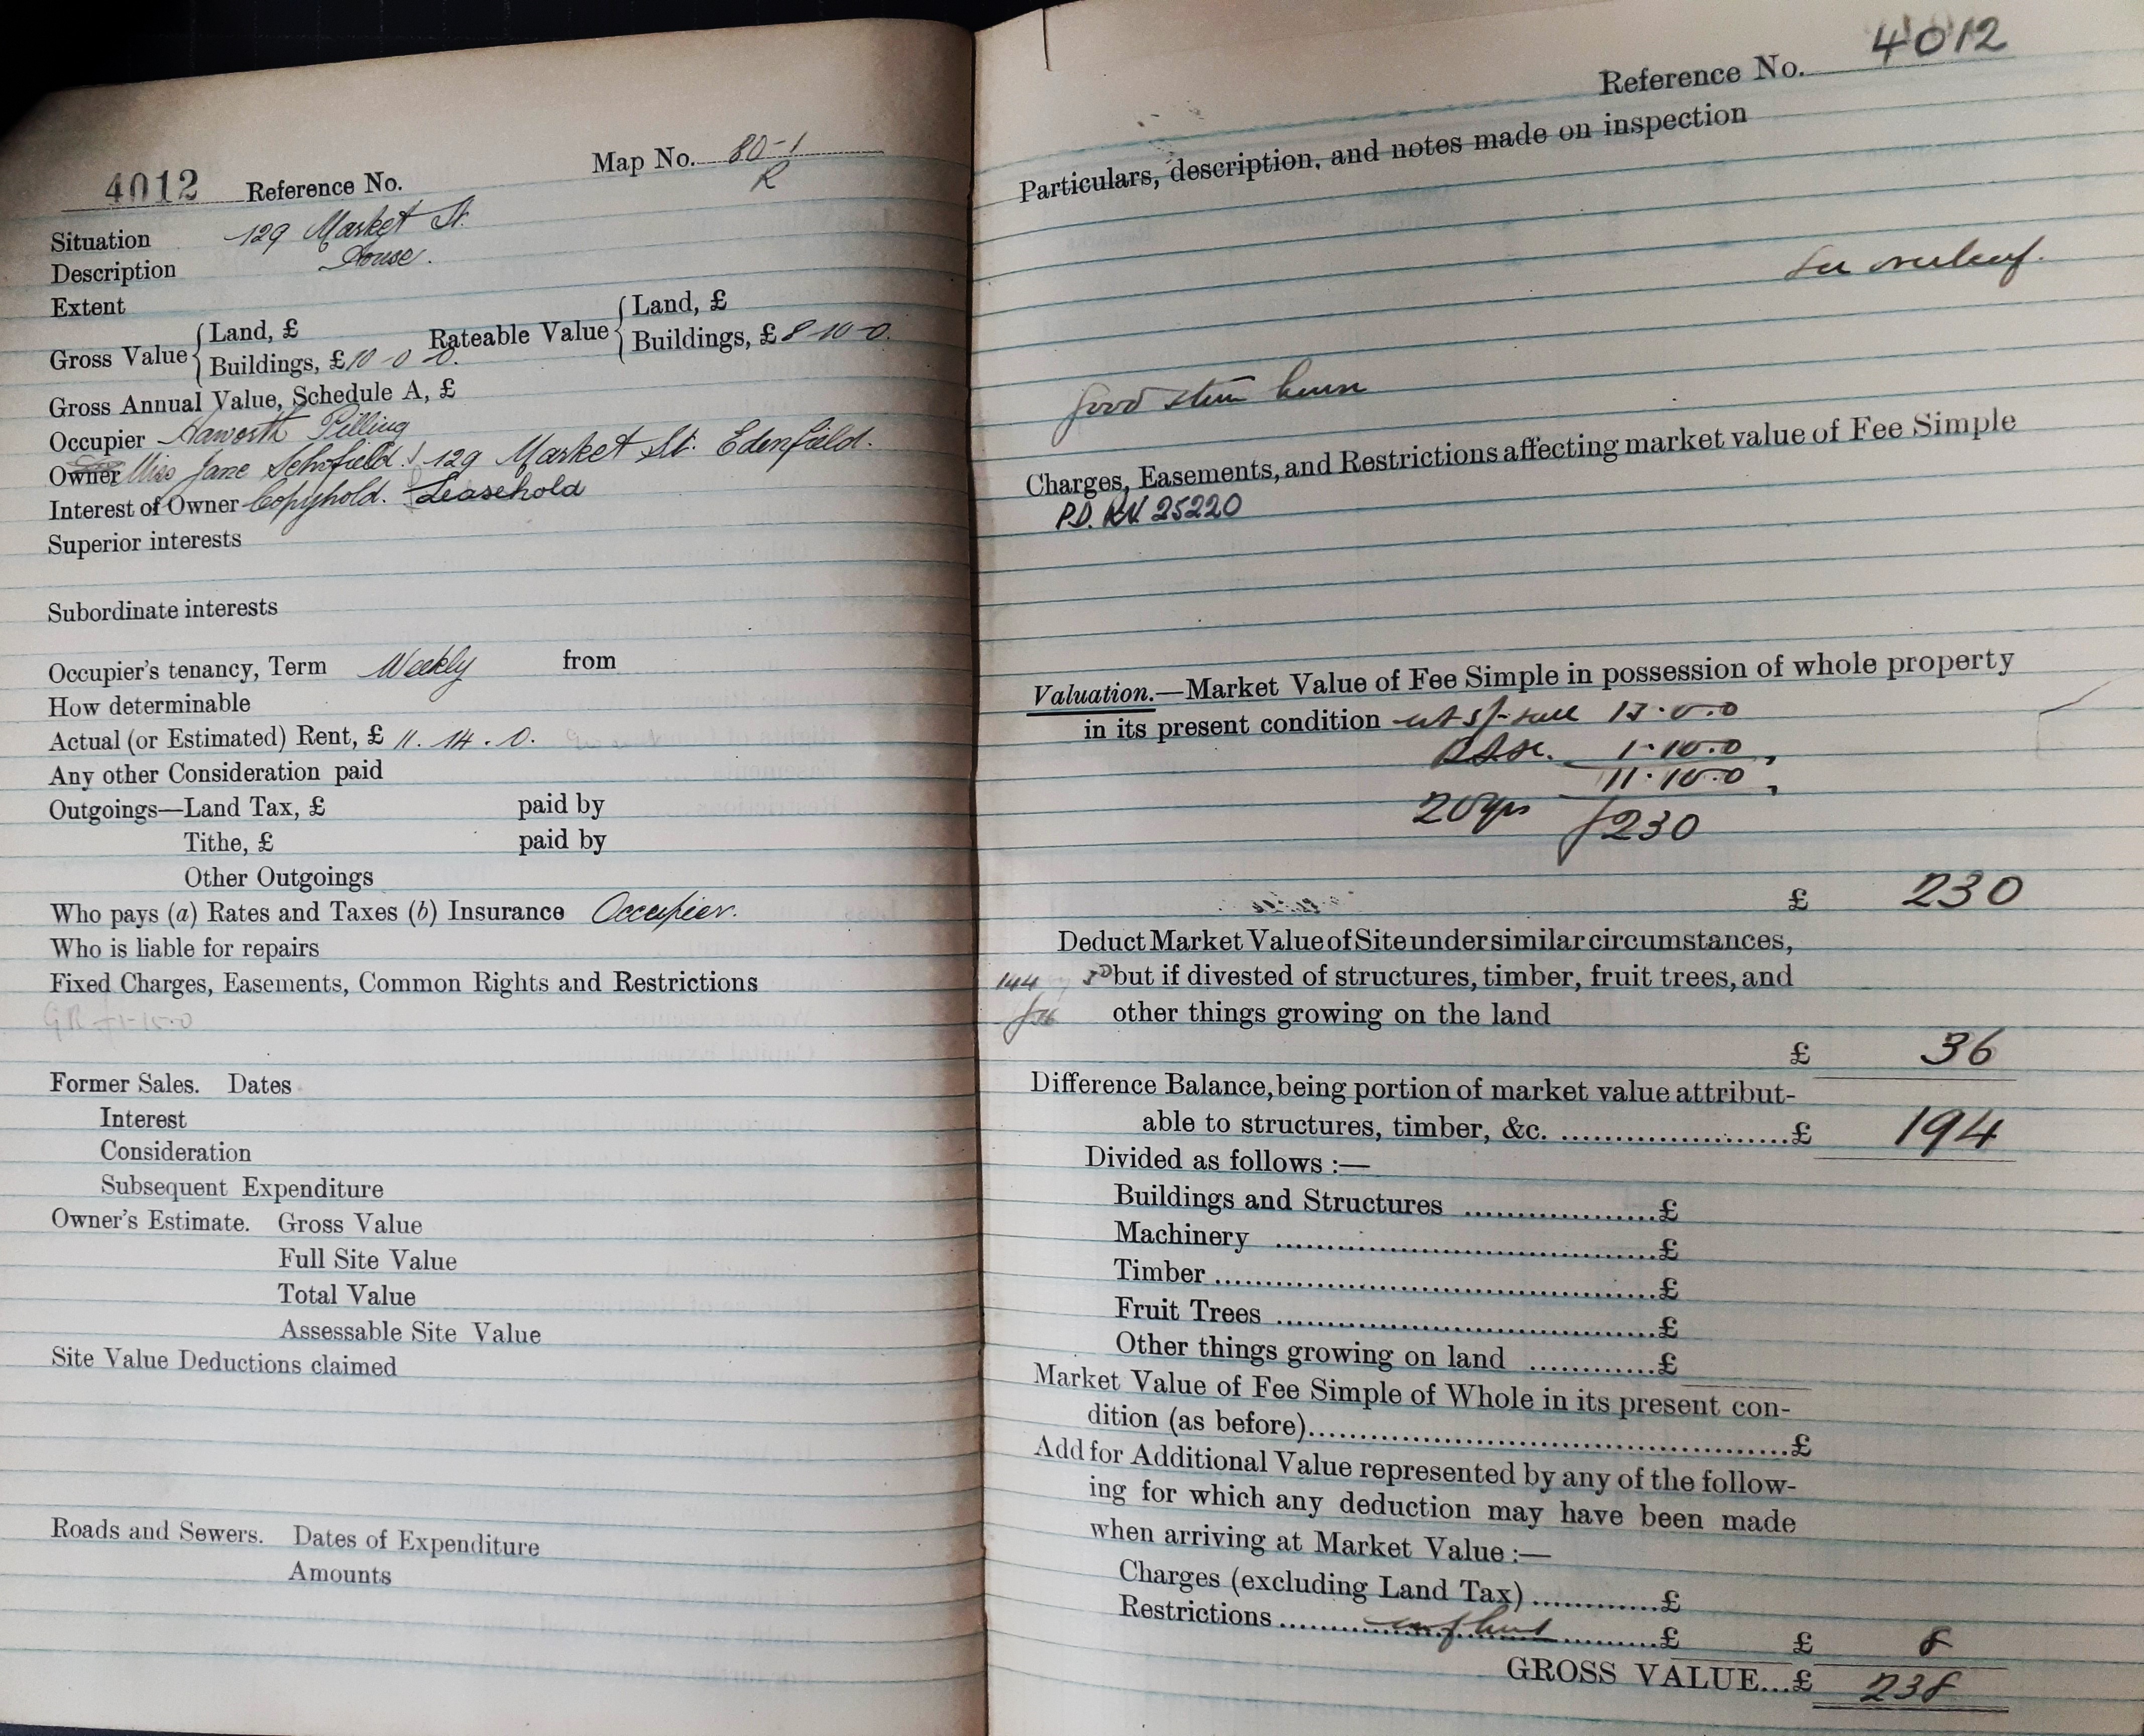 4012 Reference No. Map No. 80-1
R
Situation 129 Market St.
Description House.
Extent
Gross Value { Land, £ Rateable Value { Land, £
Buildings, £ 10-0-0. Buildings, £ 8-10-0.
Gross Annual Value, Schedule A, £
Occupier Haworth Pilling
Owner Miss Jane Schofield. 129 Market St. Edenfield.
Interest of Owner Copyhold. Leasehold
Superior interests
Subordinate interests
Occupier's tenancy, Term Weekly from
How determinable
Actual (or Estimated) Rent, £ 11. 14. 0.
Any other Consideration paid
Outgoings—Land Tax, £ paid by
Tithe, £ paid by
Other Outgoings
Who pays (a) Rates and Taxes (b) Insurance Occupier.
Who is liable for repairs
Fixed Charges, Easements, Common Rights and Restrictions
GR £1-15-0
Former Sales. Dates
Interest
Consideration
Subsequent Expenditure
Owner's Estimate. Gross Value
Full Site Value
Total Value
Assessable Site Value
Site Value Deductions claimed
Roads and Sewers. Dates of Expenditure
Amounts
Reference No. 4012
Particulars, description, and notes made on inspection
See overleaf.
good stone house
Charges, Easements, and Restrictions affecting market value of Fee Simple
P.D. 25220
Valuation.—Market Value of Fee Simple in possession of whole property
in its present condition 5/- 13.0.0
1.10.0
11.10.0
20 yrs £230
£ 230
Deduct Market Value of Site under similar circumstances,
144 but if divested of structures, timber, fruit trees, and
£36 other things growing on the land
£ 36
Difference Balance, being portion of market value attribut-
able to structures, timber, &c. ......................£ 194
Divided as follows :—
Buildings and Structures ..................£
Machinery ....................................£
Timber ..........................................£
Fruit Trees ....................................£
Other things growing on land ............£
Market Value of Fee Simple of Whole in its present con-
dition (as before)................................................£
Add for Additional Value represented by any of the follow-
ing for which any deduction may have been made
when arriving at Market Value :—
Charges (excluding Land Tax) ............£
Restrictions ....................................£ £ 8
GROSS VALUE...£ 238